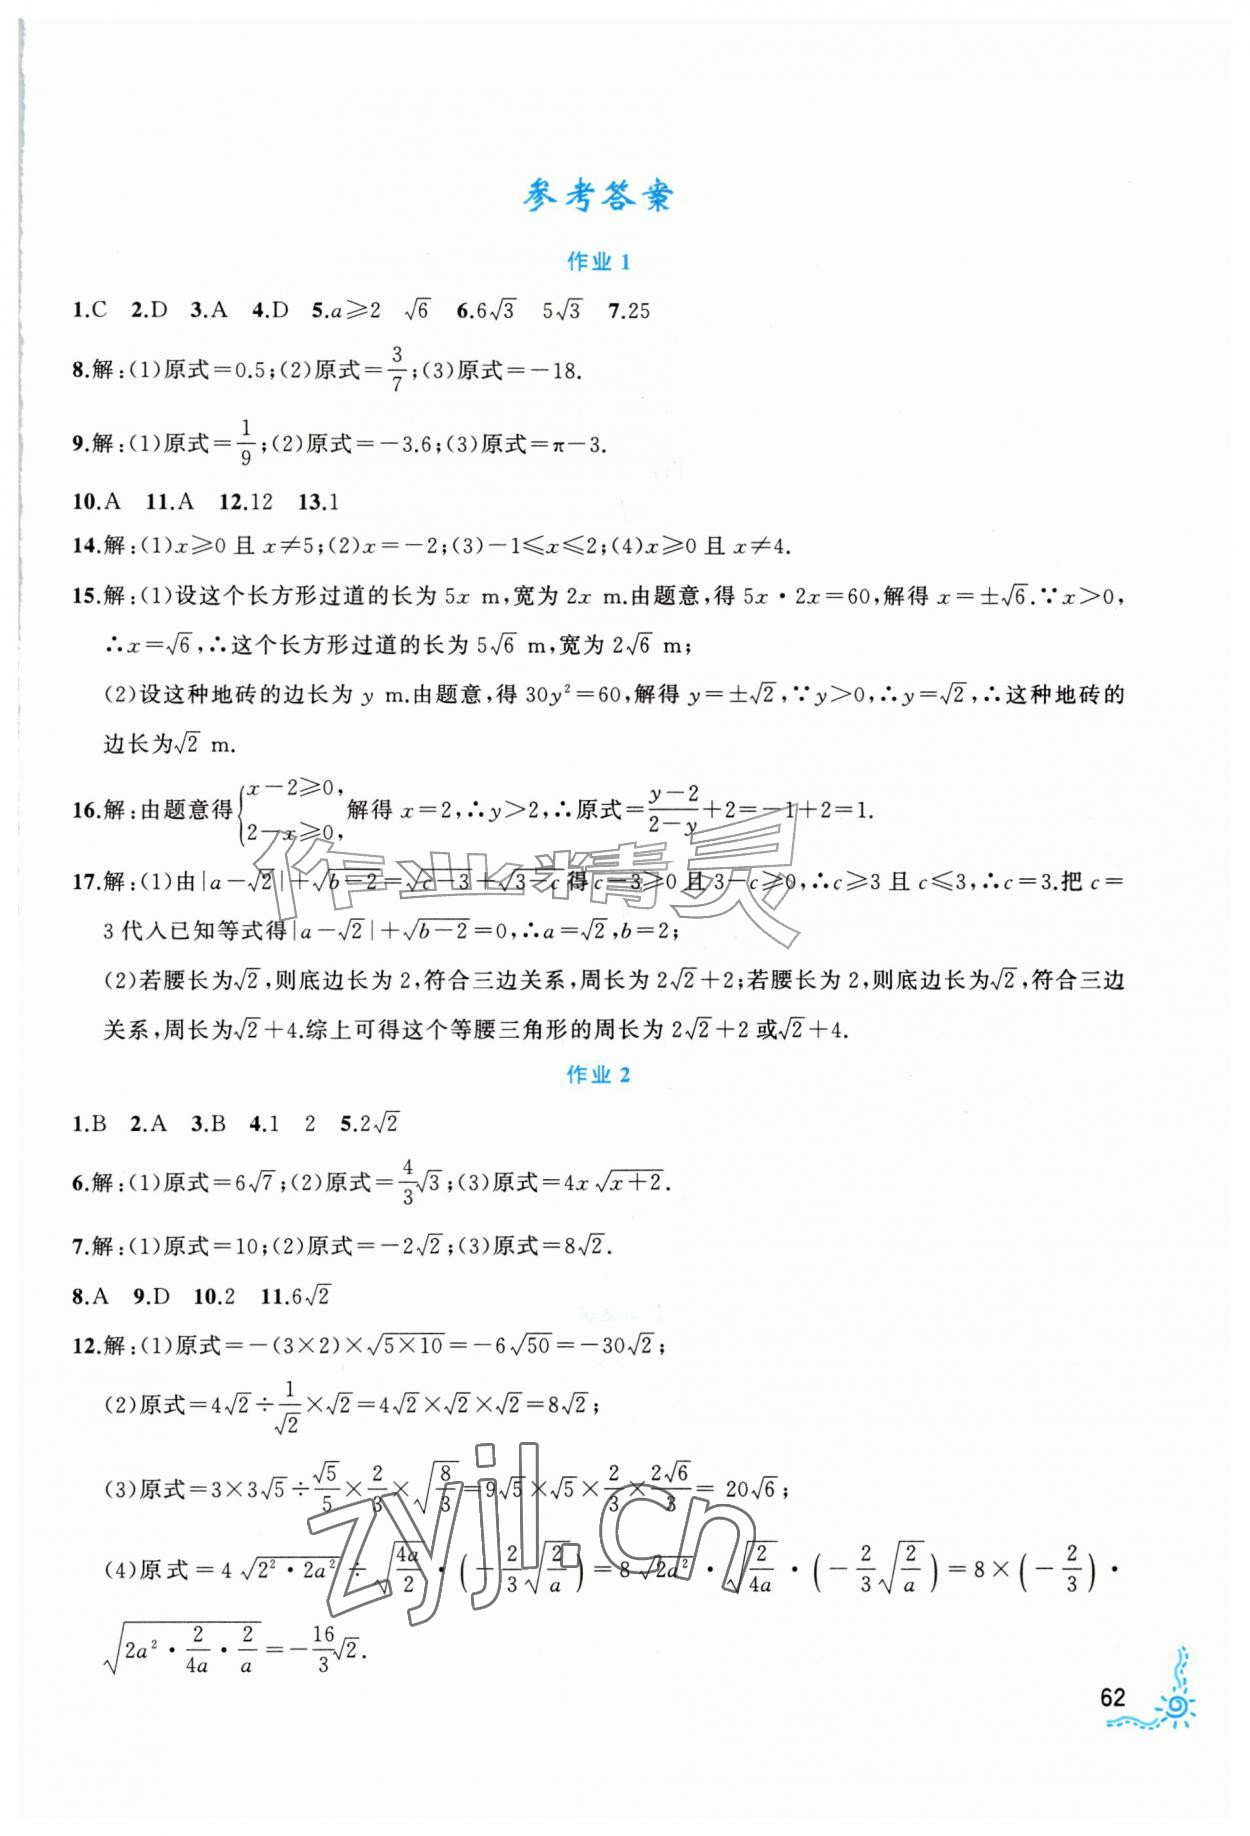 参考答案
作业 1
1.C 2.D 3.A 4.D 5.a≥2 √6 6.6√3 5√3 7.25
8.解:(1)原式=0.5;(2)原式=3/7;(3)原式=-18.
9.解:(1)原式=1/9;(2)原式=-3.6;(3)原式=π-3.
10.A 11.A 12.12 13.1
14.解:(1)x≥0 且 x≠5;(2)x=-2;(3)-1≤x≤2;(4)x≥0 且 x≠4.
15.解:(1)设这个长方形过道的长为 5x m,宽为 2x m.由题意,得 5x·2x=60,解得 x=±√6.∵x>0,
∴x=√6,∴这个长方形过道的长为 5√6 m,宽为 2√6 m;
(2)设这种地砖的边长为 y m.由题意,得 30y²=60,解得 y=±√2,∵y>0,∴y=√2,∴这种地砖的
边长为√2 m.
16.解:由题意得{x-2≥0, 2-x≥0, 解得 x=2,∴y>2,∴原式=(y-2)/(2-y)+2=-1+2=1.
17.解:(1)由|a-√2|+√(b-2)=√(c-3)+√(3-c)得 c-3≥0 且 3-c≥0,∴c≥3 且 c≤3,∴c=3.把 c=
3 代入已知等式得|a-√2|+√(b-2)=0,∴a=√2,b=2;
(2)若腰长为√2,则底边长为 2,符合三边关系,周长为 2√2+2;若腰长为 2,则底边长为√2,符合三边
关系,周长为√2+4.综上可得这个等腰三角形的周长为 2√2+2 或√2+4.
作业 2
1.B 2.A 3.B 4.1 2 5.2√2
6.解:(1)原式=6√7;(2)原式=4/3√3;(3)原式=4x√(x+2).
7.解:(1)原式=10;(2)原式=-2√2;(3)原式=8√2.
8.A 9.D 10.2 11.6√2
12.解:(1)原式=-(3×2)×√(5×10)=-6√50=-30√2;
(2)原式=4√2÷1/√2×√2=4√2×√2×√2=8√2;
(3)原式=3×3√5÷√5/5×2/3×√(8/3)=9√5×√5×2/3×2√6/3= 20√6;
(4)原式=4√(2²·2a²)÷√(4a/2)·(-2/3√(2/a))=8√(2a²)·√(2/4a)·(-2/3√(2/a))=8×(-2/3)·
√(2a²·2/4a·2/a)=-16/3√2.
作业精灵
zyjl.cn
62